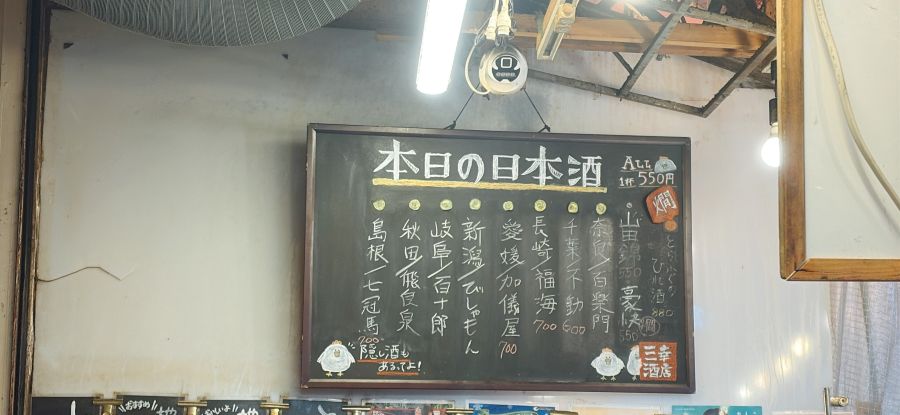 本日の日本酒
ALL
1杯 550円
燗
とらふぐの
ひれ酒 880
山田錦 550
豪快 550
燗
奈良/百楽門
千葉/不動 600
長崎/福海 700
愛媛/加儀屋 700
新潟/びしゃもん
岐阜/百十郎
秋田/飛良泉
島根/七冠馬 700
隠し酒も
あるってよ!
三幸
酒店
おすすめ